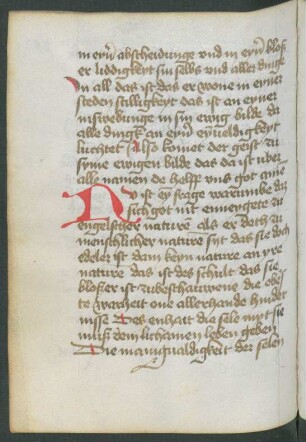 in eyner abscheidunge vnd in eyner bloß
er liddigkeyt sin selbs vnd aller dinge
In all das ist das er wone in eyner
steden stilligkeyt das ist an eyner
inswebunge in sin ewig bilde da
alle dingk an eyner eynueldigkeyt
luchtet Also komet der geist zu
syme ewigen bilde das da ist uber
alle namen de helff uns got amen
Nu ist ey frage warumbe das
sich got nit enneygete zu
engelscher nature als er doch zu
menschlicher nature syt das sie doch
edeler ist dann keyn nature an yre
nature das ist des schult das sie
bloßer ist zubeschauwene die obe
te warheit one allerhande hinder
nisse Des enhatt die sele nyt sie
muß dem lichamen leben geben
Die manigualdigkeit der selen